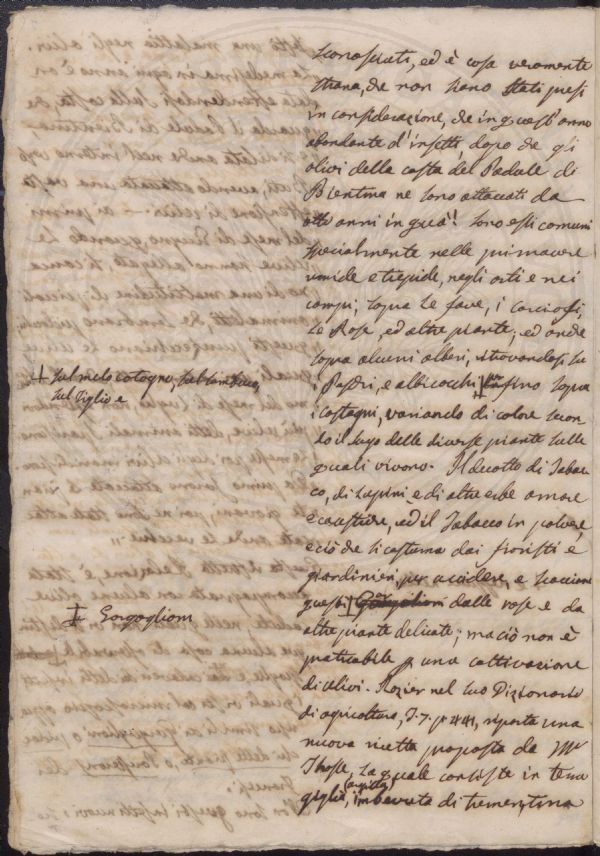 sconosciuti, ed è cosa veramente
strana, che non siano stati presi
in considerazione, che in quest'anno
abondante d'insetti, dopo che gli
olivi della costa del Padule di
Bientina ne sono attaccati da
otto anni in quà! sono essi comuni
specialmente nelle primavere
umide e tiepide, negli orti e nei
campi, sopra le fave, i carciofi,
le Rose, ed altre piante, ed anche
sopra alcuni alberi, ritrovandosi su
i Peschi, e albicocchi ‡ sino sopra
i castagni, variando di colore secon-
do il sugo delle diverse piante sulle
quali vivono. Il decotto di Tabac-
co, di Lupini e di altre erbe amare
e caustiche, ed il Tabacco in polvere,
e ciò che si costuma dai fioristi e
giardinieri, per uccidere, e scacciare
questi ‡ Gorgolioni dalle rose e da
altre piante delicate; ma ciò non è
praticabile p una coltivazione
di olivi. Rozier nel suo Dizionario
di agricoltura, T. 7. p. 441, riporta una
nuova ricetta proposta da Mr
Those, la quale consiste in tenere
(argilla)
giglia, imbevuta di trementina
‡ sul melo cotogno, sul sambuco,
sul Tiglio e
‡ Gorgoglioni